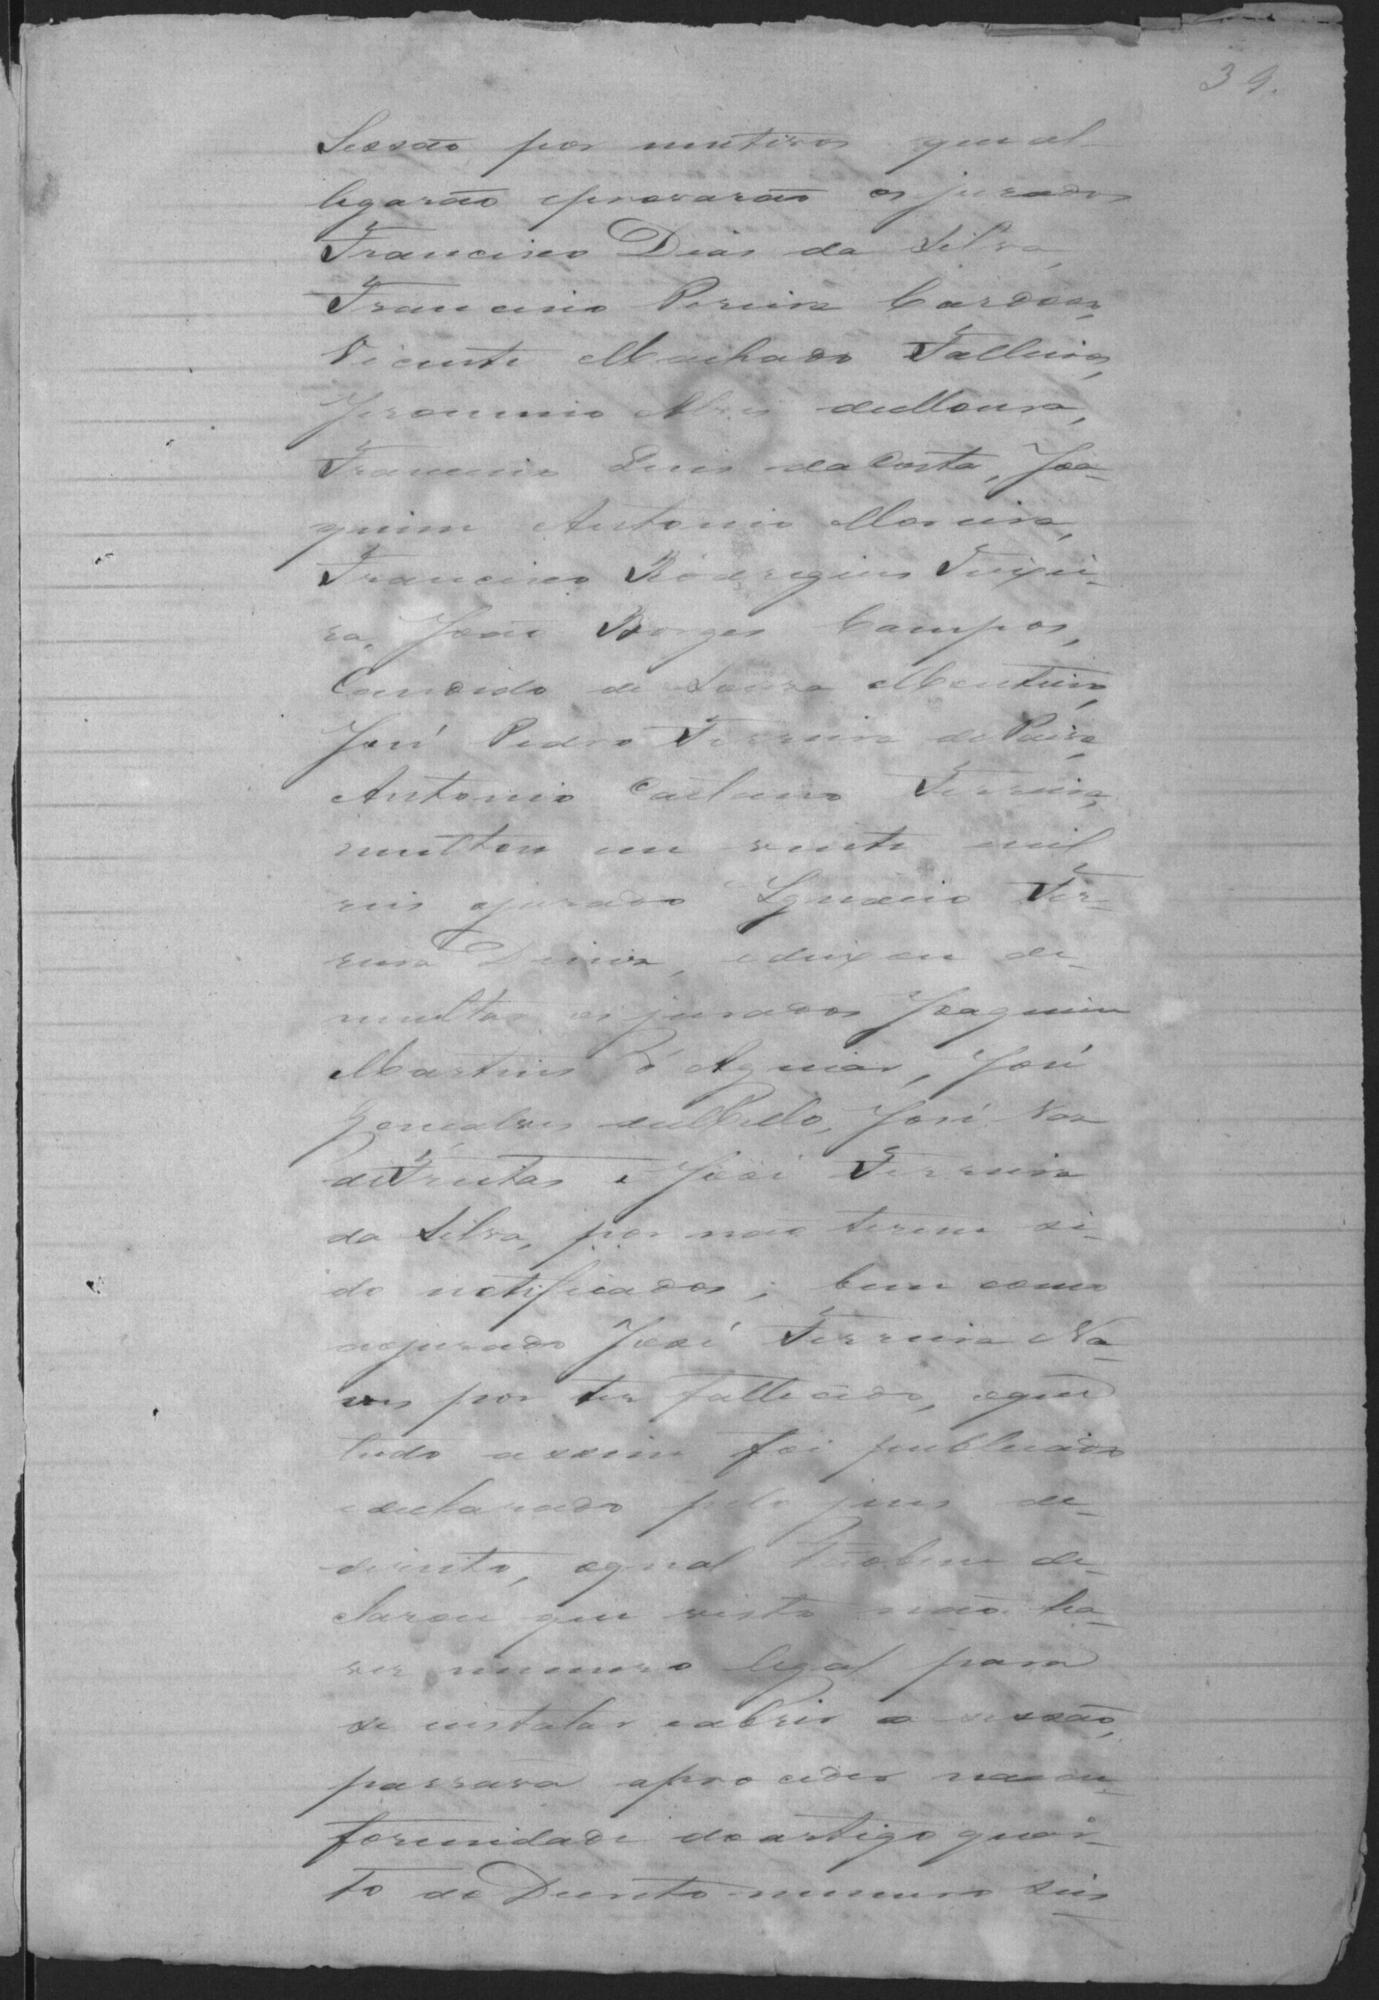 39.
Sessão por motivos que al-
legarão eprovarão os jurados
Francisco Dias da Silva,
Francisco Pereira Cardoso,
Vicente Machado Falleiros,
Jeronimo Alves de Moura,
Francisco Luis da Costa, Joa-
quim Antonio Moreira,
Francisco Rodrigues Teixei-
ra, João Borges Campos,
Candido de Souza Monteiro,
José Pedro Ferreira de Paiva,
Antonio Caetano Ferreira,
multou em vinte mil
reis ojurado Ignacio Fer-
reira Diniz, edeixou de
multar os jurados Joaquim
Martins d'Aguiar, José
Gonçalves de Mello, José Vaz
de Freitas e José Ferreira
da Silva, por não terem si-
do notificados; bem como
aojurado José Ferreira Na-
ves por ter fallecido, oque
tudo assim foi publicado
edeclarado pelo juis de
direito, oqual tãobem de-
clarou que visto não ha-
ver numero legal para
se installar eabrir a sessão,
passava aproceder na con-
formidade do artigo quar-
to do Decreto numero seis